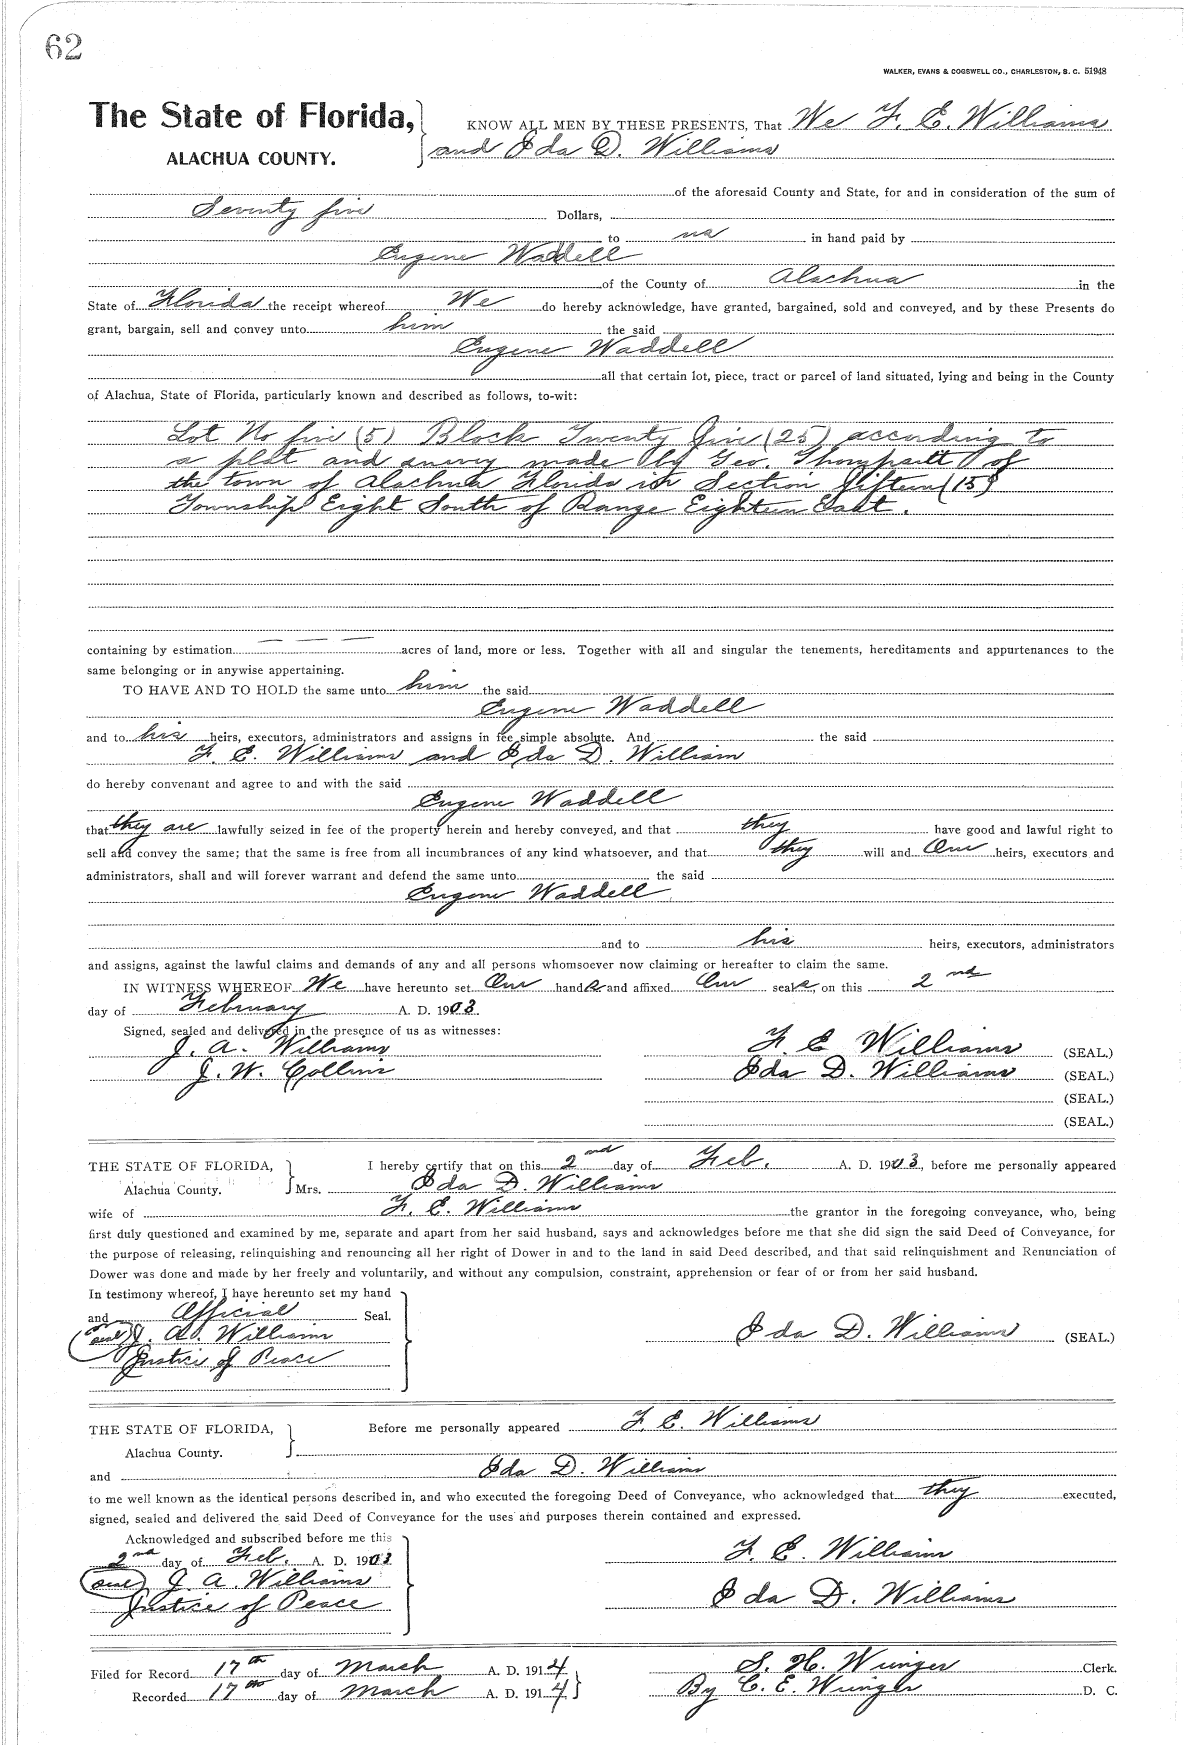 62
WALKER, EVANS & COGSWELL CO., CHARLESTON, S. C. 51948
The State of Florida,
ALACHUA COUNTY.
KNOW ALL MEN BY THESE PRESENTS, That We F. E. Williams
and Ida D. Williams
of the aforesaid County and State, for and in consideration of the sum of
Seventy five Dollars,
to us in hand paid by
Eugene Waddell
of the County of Alachua in the
State of Florida the receipt whereof We do hereby acknowledge, have granted, bargained, sold and conveyed, and by these Presents do
grant, bargain, sell and convey unto him the said
Eugene Waddell
all that certain lot, piece, tract or parcel of land situated, lying and being in the County
of Alachua, State of Florida, particularly known and described as follows, to-wit:
Lot No five (5) Block Twenty five (25) according to
a plat and survey made by Geo. of
the town of Alachua Florida in Section fifteen (15)
Township Eight South of Range Eighteen East.
containing by estimation — — — acres of land, more or less. Together with all and singular the tenements, hereditaments and appurtenances to the
same belonging or in anywise appertaining.
TO HAVE AND TO HOLD the same unto him the said
Eugene Waddell
and to his heirs, executors, administrators and assigns in fee simple absolute. And the said
F. E. Williams and Ida D. William
do hereby convenant and agree to and with the said
Eugene Waddell
that they are lawfully seized in fee of the property herein and hereby conveyed, and that they have good and lawful right to
sell and convey the same; that the same is free from all incumbrances of any kind whatsoever, and that they will and Our heirs, executors and
administrators, shall and will forever warrant and defend the same unto the said
Eugene Waddell
and to his heirs, executors, administrators
and assigns, against the lawful claims and demands of any and all persons whomsoever now claiming or hereafter to claim the same.
IN WITNESS WHEREOF We have hereunto set Our hands and affixed Our seals, on this 2nd
day of February A. D. 1903.
Signed, sealed and delivered in the presence of us as witnesses:
J. A. Williams
J. W. Collins
F. E Williams (SEAL.)
Ida D. Williams (SEAL.)
(SEAL.)
(SEAL.)
THE STATE OF FLORIDA,
Alachua County.
I hereby certify that on this 2nd day of Feb. A. D. 1903, before me personally appeared
Mrs. Ida D. Williams
wife of F. E. Williams the grantor in the foregoing conveyance, who, being
first duly questioned and examined by me, separate and apart from her said husband, says and acknowledges before me that she did sign the said Deed of Conveyance, for
the purpose of releasing, relinquishing and renouncing all her right of Dower in and to the land in said Deed described, and that said relinquishment and Renunciation of
Dower was done and made by her freely and voluntarily, and without any compulsion, constraint, apprehension or fear of or from her said husband.
In testimony whereof, I have hereunto set my hand
and Official Seal.
(seal) J. A. William
Justice of Peace
Ida D. Williams (SEAL.)
THE STATE OF FLORIDA,
Alachua County.
Before me personally appeared F. E. Williams
and Ida D. Williams
to me well known as the identical persons described in, and who executed the foregoing Deed of Conveyance, who acknowledged that they executed,
signed, sealed and delivered the said Deed of Conveyance for the uses and purposes therein contained and expressed.
Acknowledged and subscribed before me this
2nd day of Feb. A. D. 1903
(seal) J. A. Williams
Justice of Peace
F. E. Williams
Ida D. Williams
Filed for Record 17th day of March A. D. 1914
Recorded 17th day of March A. D. 1914
S. H. Wienges Clerk.
By C. E. Wienges D. C.